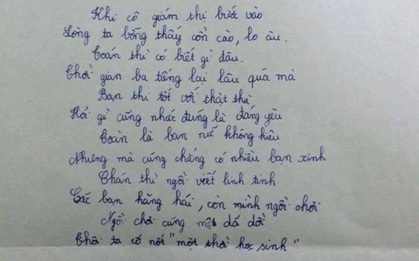 Khi cô giám thị bước vào
Lòng ta bỗng thấy cồn cào, lo âu.
Toán thì có biết gì đâu.
Thời gian ba tiếng lại lâu quá mà
Bạn thi tốt với thật thà
Hỏi gì cũng nhức đúng là đáng yêu
Toàn là bạn nữ không kiêu
Nhưng mà cũng chẳng có nhiều bạn xinh
Chán thì ngồi viết linh tinh
Các bạn hăng hái, còn mình ngồi chơi
Ngồi chơi cũng một đá đời
Thôi ta cố nốt "một thời học sinh"